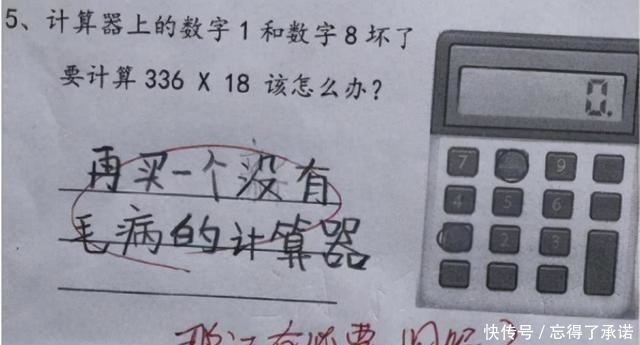 5、计算器上的数字1和数字8坏了
要计算336 X 18 该怎么办?
再买一个没有
毛病的计算器
0.
7
9
4
5
6
2
3
快传号/忘得了承诺